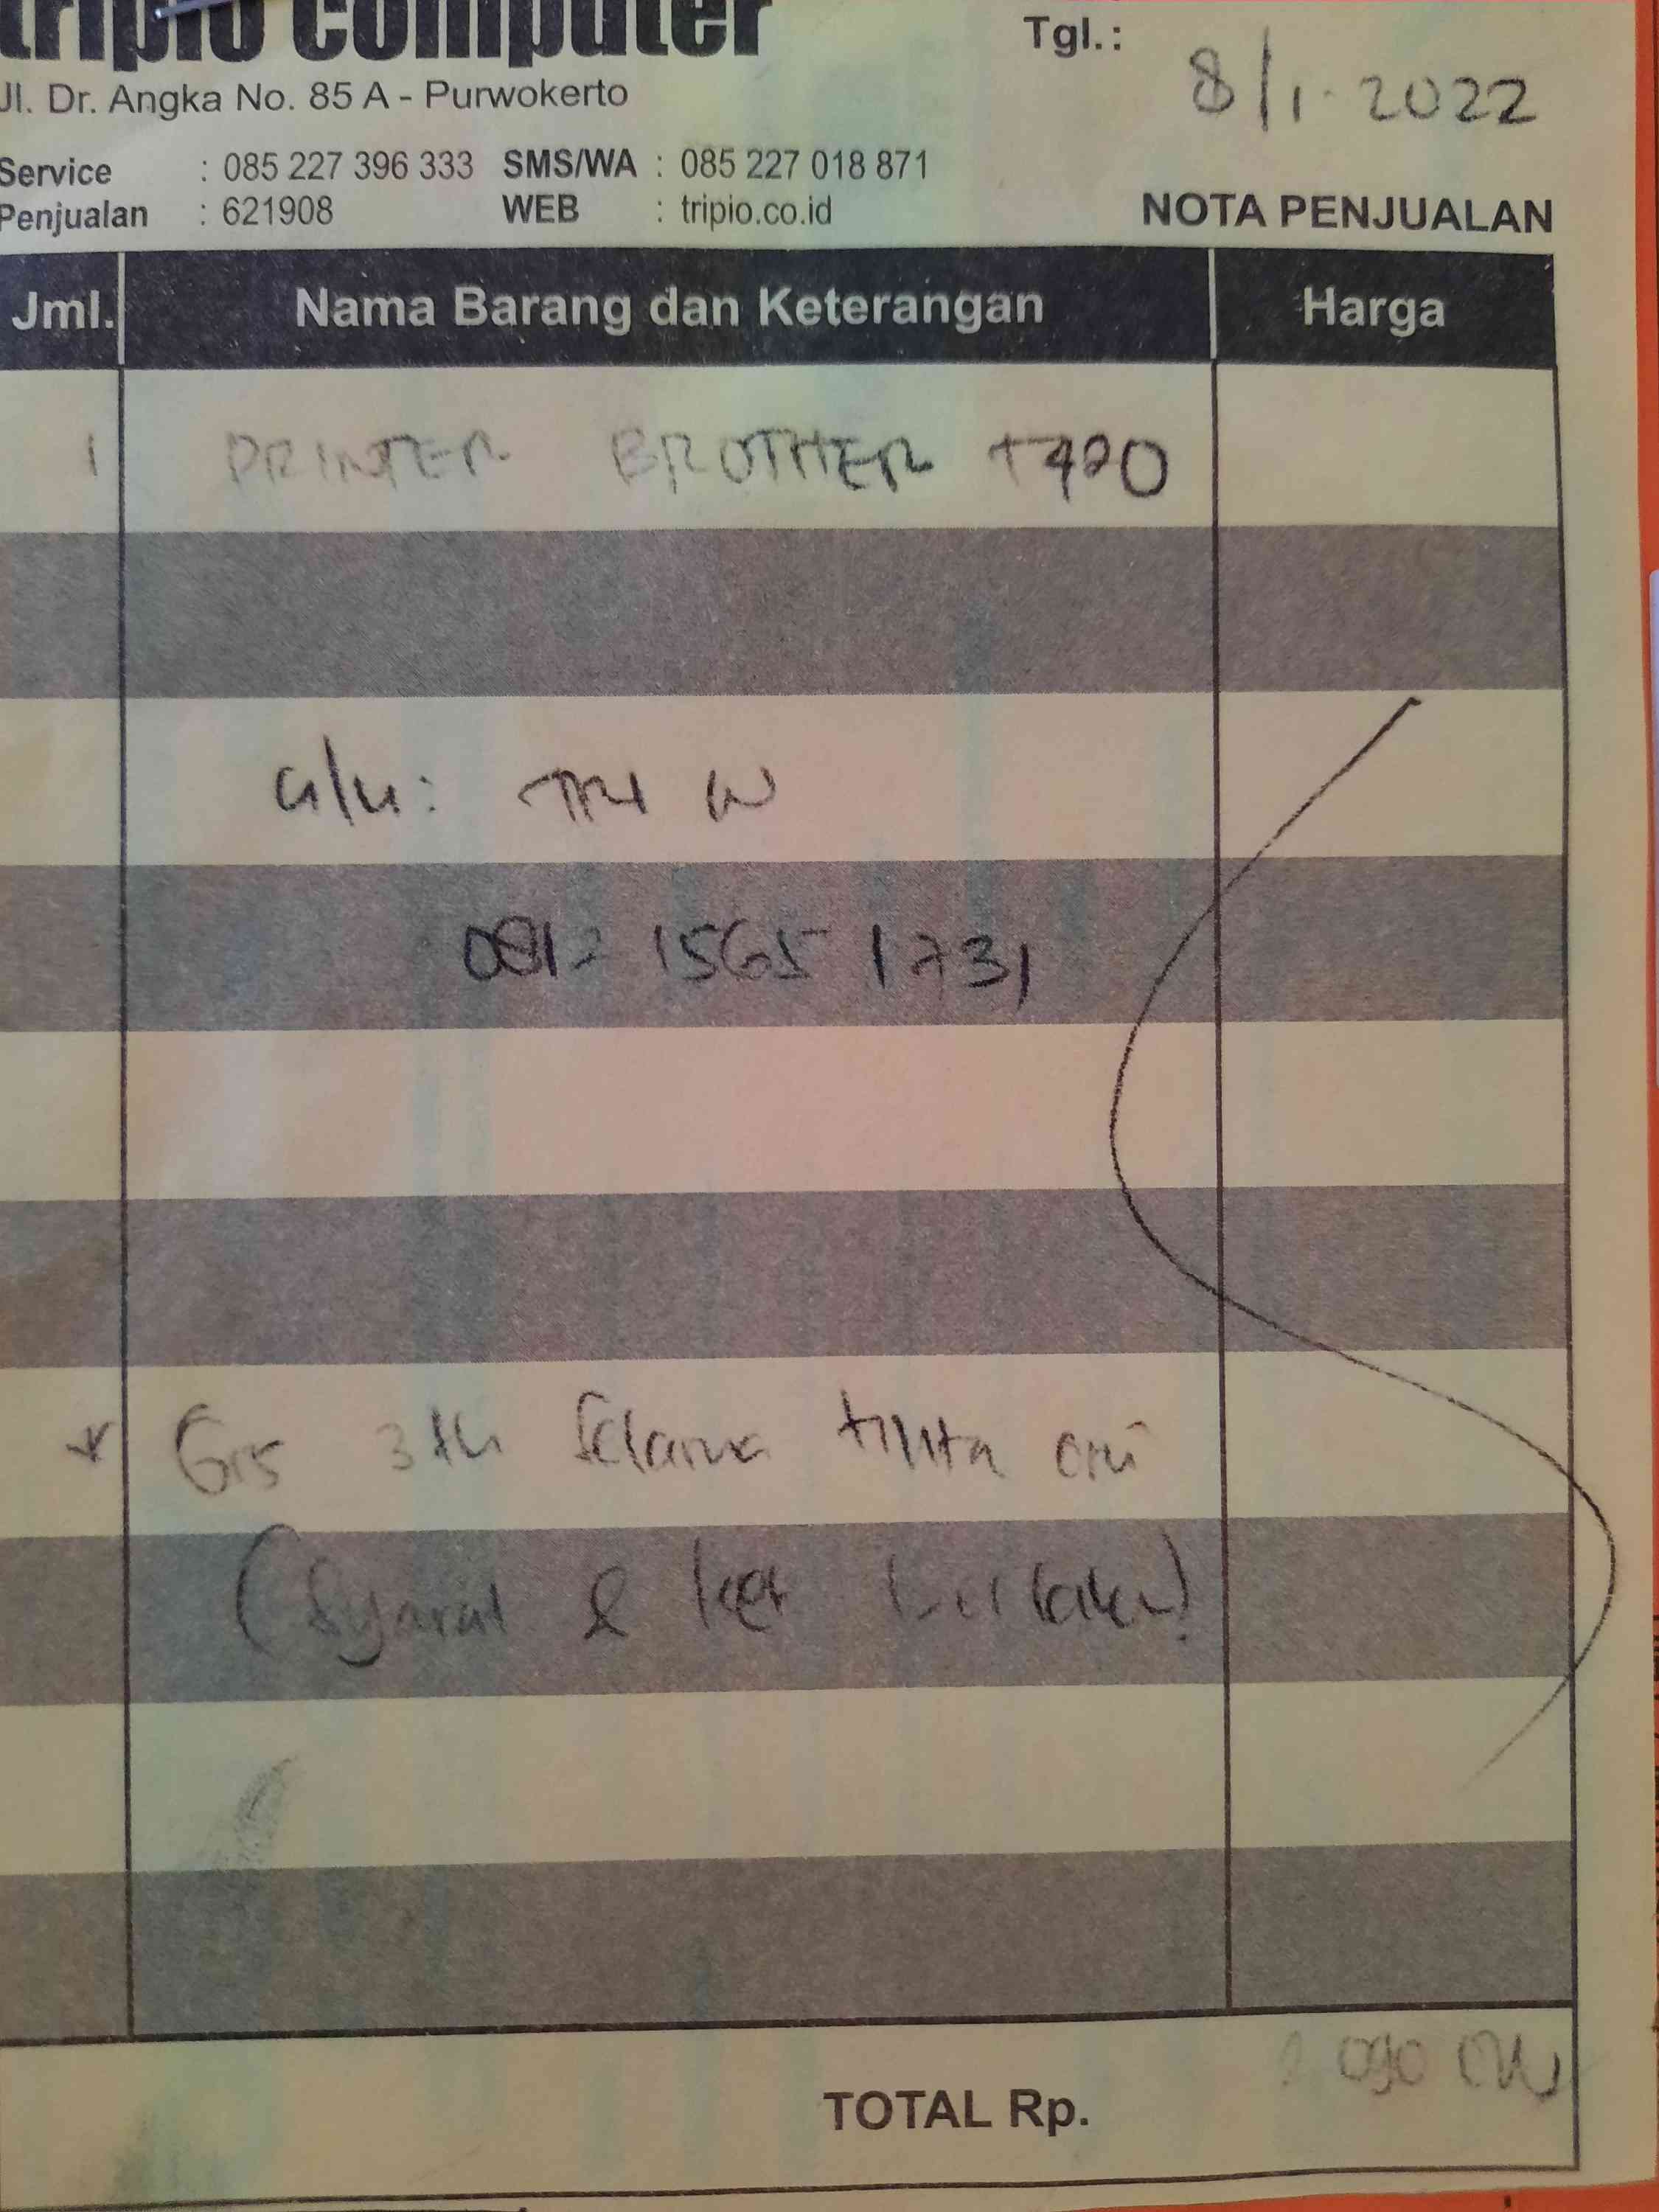 tripio computer
Tgl.: 8/1.2022
Jl. Dr. Angka No. 85 A - Purwokerto
Service : 085 227 396 333 SMS/WA : 085 227 018 871
Penjualan : 621908 WEB : tripio.co.id
NOTA PENJUALAN
Jml. Nama Barang dan Keterangan Harga
1 PRINTER BROTHER T420
u/u: TRI W
0812 1565 1731
* Grs 3 th selama tinta ori
(Syarat & ket berlaku)
TOTAL Rp.